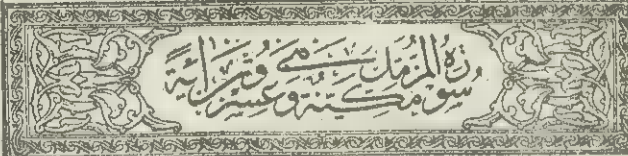 سورة المزمل مكية وهى عشرون اية